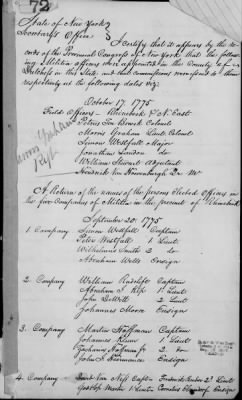 72
State of New York
Secretary's Office
I certify that it appears by the re-
cords of the Provincial Congress of New York that the follow-
ing Militia officers were appointed in the County of
Dutchess in this State and that commissions were issued to them
respectively at the following dates viz:
October 17 1775
Field Officers - Rhinebeck & N. East
Petrus Ten Broeck Colonel
Morris Graham Lieut. Colonel
Simon Westfall Major
Jonathan Landon do
William Stewart Adjutant
A Return of the names of the persons Elected Officers in
the five Companies of Militia in the precinct of Rhinebeck
September 20, 1775
1. Company Simon Westfall Captain
Peter Westfall 1 Lieut
Wilhelmus Smith 2 do
Abraham Wells Ensign
2. Company William Radclift Captain
Abraham J Kip 1 Lieut
John DeWitt 2 Lieut
Johannes Moore Ensign
3. Company Martin Hoffman Captain
Johannes 1 Lieut
Zacharias Hoffman Jr 2 do
John J. Ensign
4. Company Captn 2d Lieut
1 Lieut Ensign